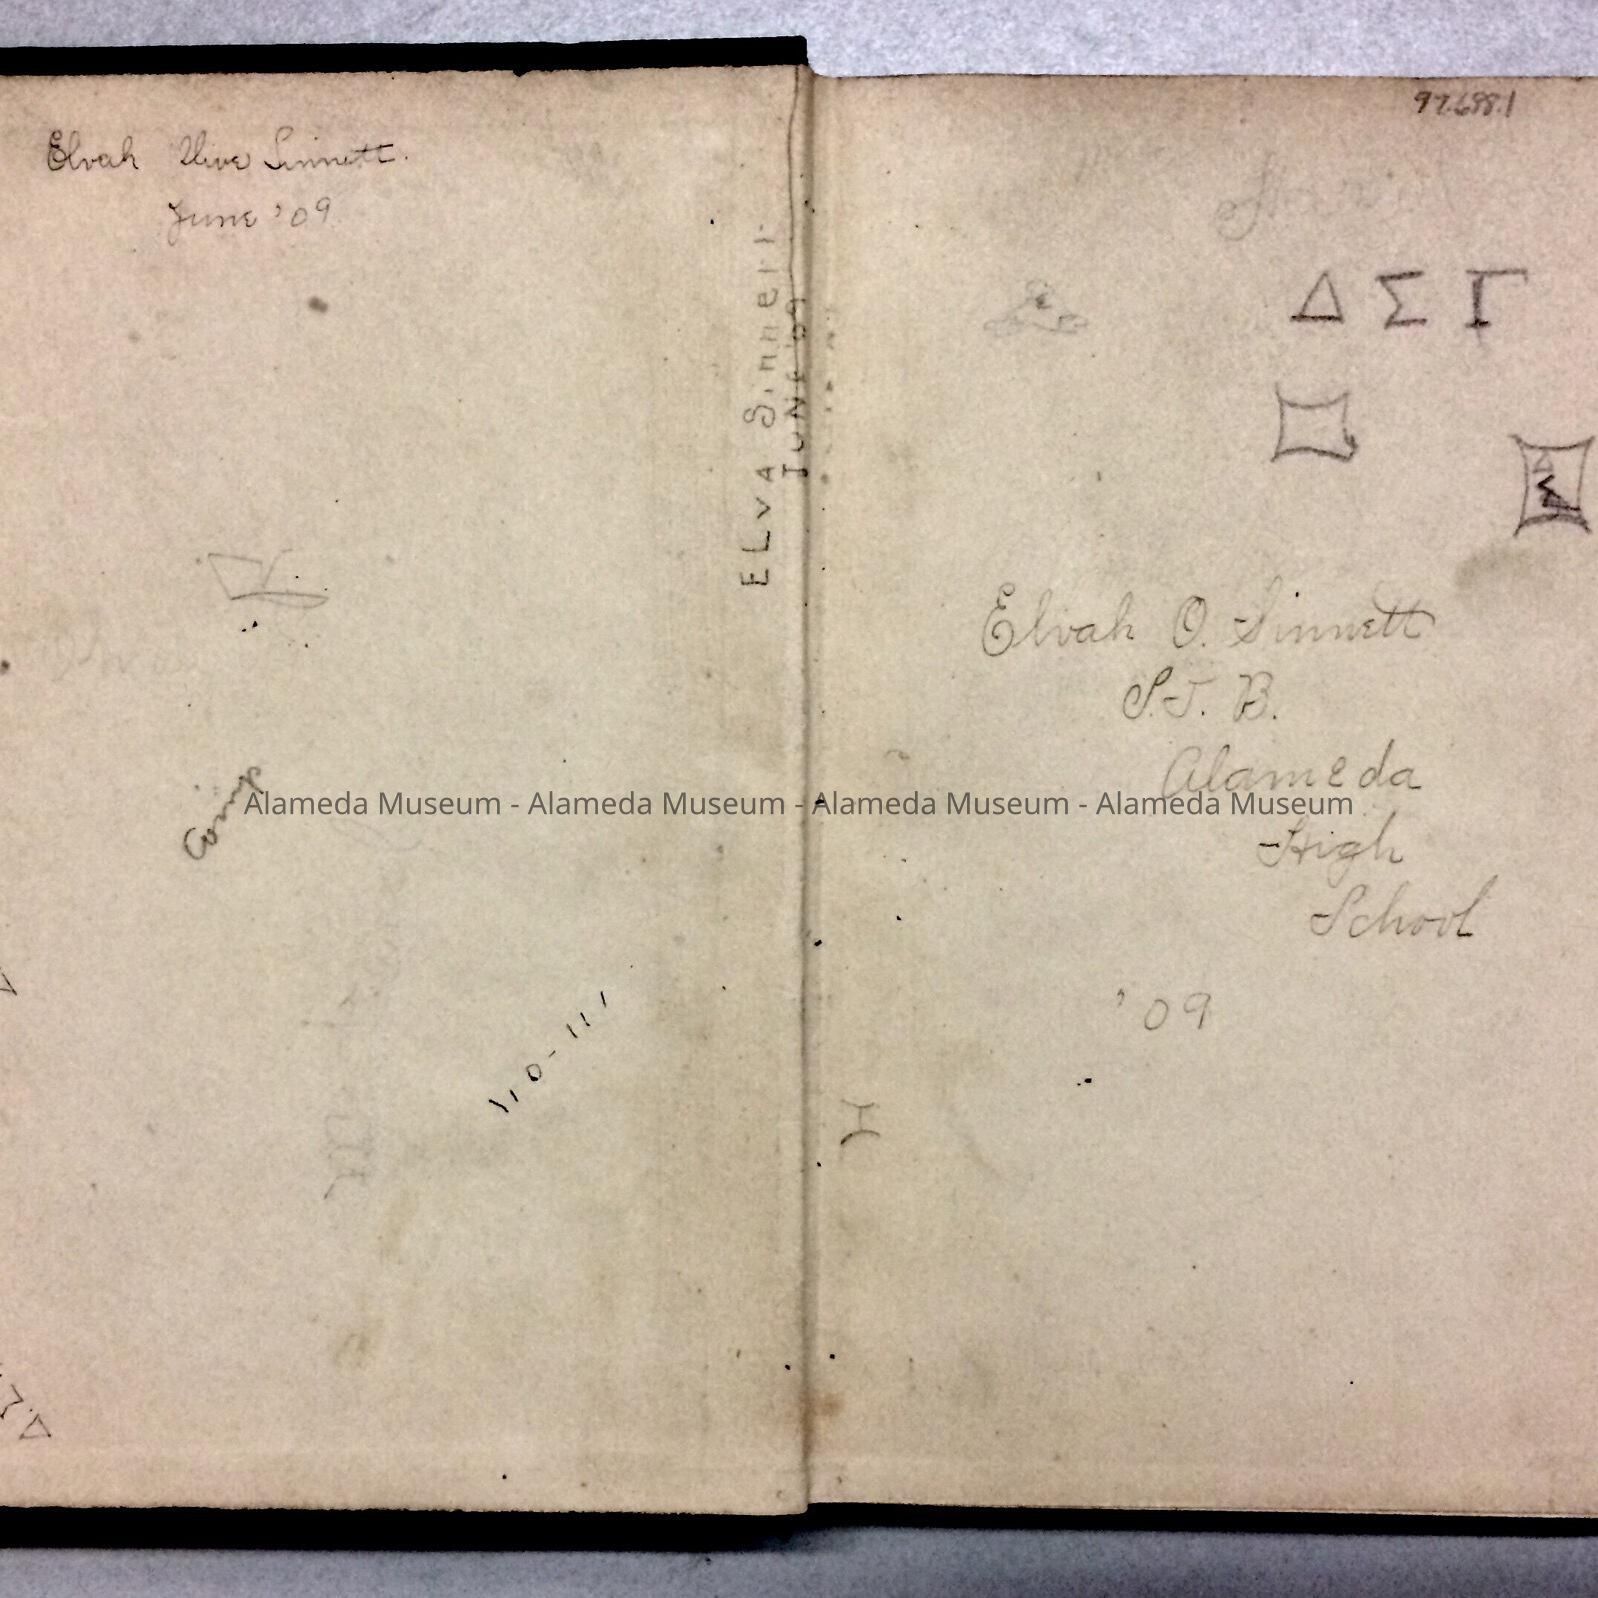 Elvah Olive Sinnett.
June '09
ELVA Sinnett
JUNE '09
Comp
110-111
97.688.1
Δ Σ Γ
Elvah O. Sinnett
S.J. B.
Alameda
High
School
'09
Alameda Museum - Alameda Museum - Alameda Museum - Alameda Museum